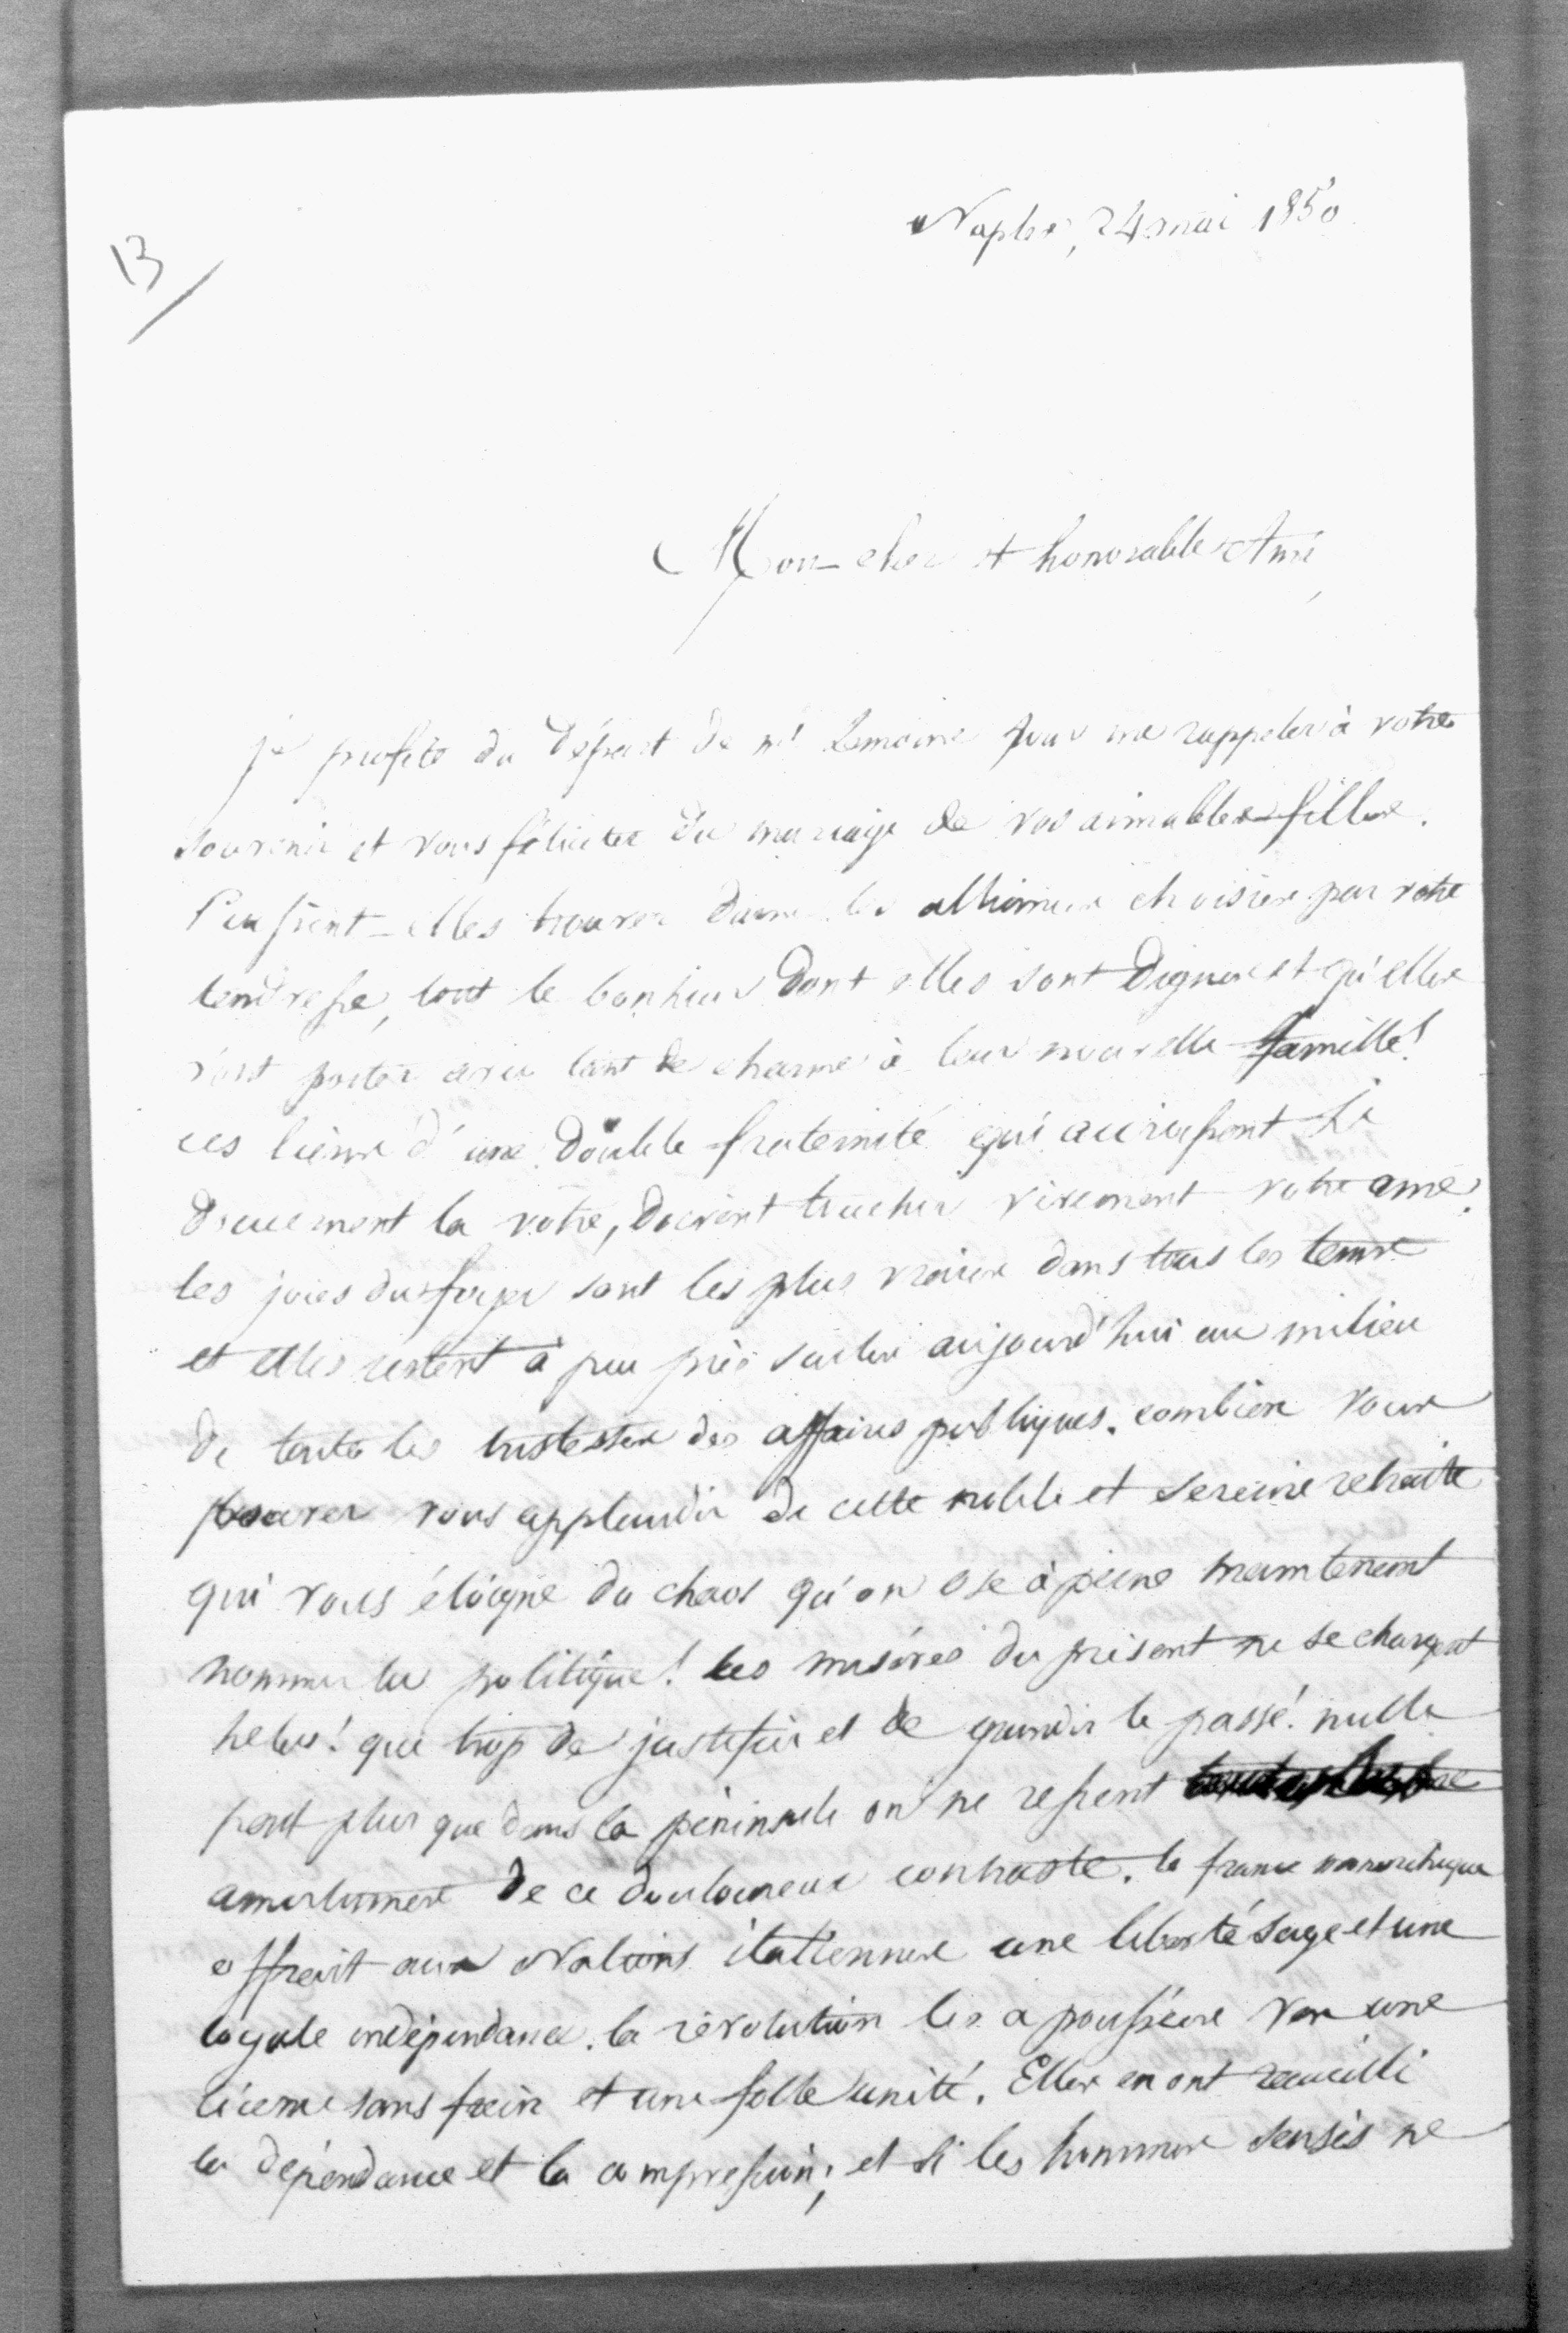 13
Naples, 24 mai 1850
Mon cher et honorable Ami,
je profite du départ de mr Lemoine pour me rappeler à votre
souvenir et vous féliciter du mariage de vos aimables filles.
Puissent-elles trouver dans les alliances choisies par votre
tendresse, tout le bonheur dont elles sont dignes et qu'elles
vont porter avec tant de charme à leur nouvelle famille!
ces liens d'une double fraternité qui accroissent si
doucement la vôtre, doivent toucher vivement votre ame.
les joies du foyer sont les plus vraies dans tous les tems
et elles restent à peu près seules aujourd'hui au milieu
de toutes les tristesses des affaires publiques. combien vous
pouvez vous applaudir de cette noble et sereine retraite
qui vous éloigne du chaos qu'on ose à peine maintenant
nommer la politique! les misères du présent ne se chargent
helas! que trop de justifier et de grandir le passé. nulle
part plus que dans la péninsule on ne ressent
amertumes de ce douloureux contraste. la france monarchique
offrait aux Nations italiennes une liberté sage et une
loyale indépendance. la révolution les a poussées vers une
licence sans frein et une folle unité. Elles en ont recueilli
la dépendance et la compression; et si les hommes sensés ne